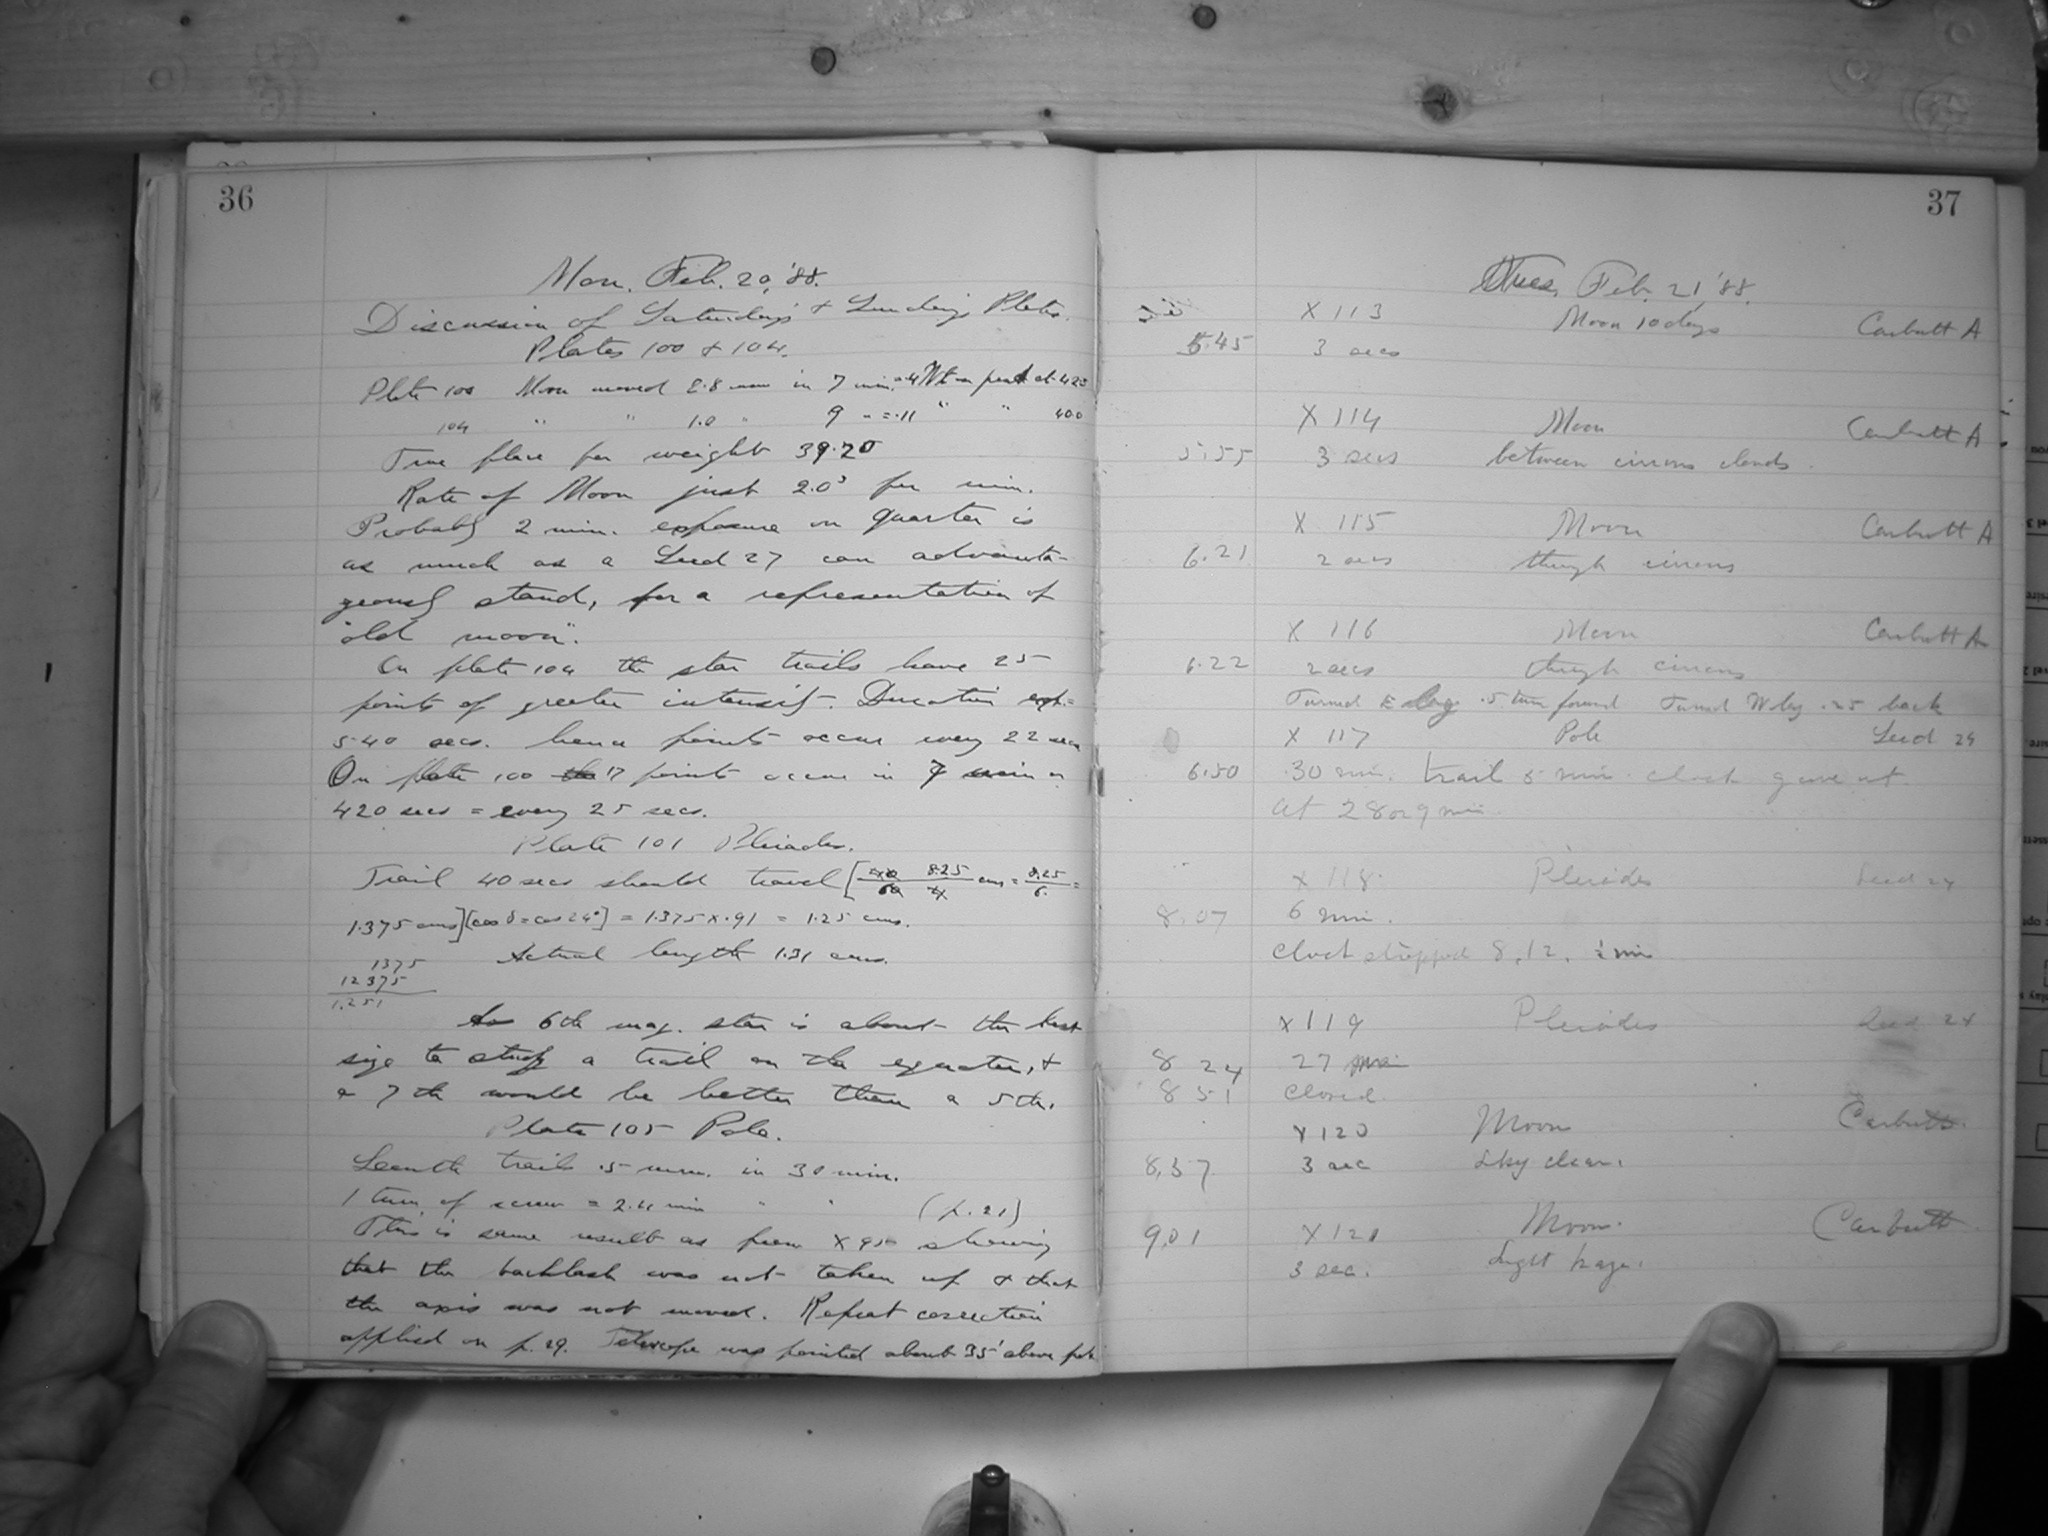 36
Mon. Feb. 20, '88.
Discussion of Saturday's + Sunday's Plates.
Plates 100 + 104.
Plate 100 Moon moved 2.8 mm in 7 min = .4 Wt on pend at 425
104 " " 1.0 " 9 " = .11 " " 400
True place for weight 39.20
Rate of Moon just 2.0s per min.
Probably 2 min. exposure on quarter is
as much as a Seed 27 can advanta-
geously stand, for a representation of
"old moon".
On plate 104 the star trails have 25
points of greater intensity. Duration exp. =
540 secs. hence points occur every 22 secs
On plate 100 17 points occur in 7 min or
420 secs = every 25 secs.
Plate 101 Pleiades.
Trail 40 secs should travel [40/60 8.25/4 cms = 8.25/6 =
1.375 cms] [cos δ = cos 24°] = 1.375 x .91 = 1.25 cms.
Actual length 1.31 cms.
1375
12375
1.251
A 6th mag. star is about the best
size to study a trail on the equator, +
a 7th would be better than a 5th.
Plate 105 Pole.
Length trails .5 mm. in 30 min.
1 turn of screw = 2.4 mm " " (p. 21)
This is same result as from X 95 showing
that the backlash was not taken up & that
the axis was not moved. Repeat correction
applied on p. 29. Telescope was pointed about 35' above pole
37
Tues. Feb. 21, '88.
X 113 Moon 10 days Carbutt A
5.45 3 secs
X 114 Moon Carbutt A
5.55 3 secs between cirrous clouds.
X 115 Moon Carbutt A
6.21 2 secs though cirrous
X 116 Moon Carbutt A
6.22 2 secs though cirrous
Turned E leg .5 turn forward Turned W leg .25 back
X 117 Pole Seed 24
6.50 30 min. trail 5 min. clock gave out
at 28 or 9 min.
X 118 Pleiades Seed 24
8.07 6 min.
Clock stopped 8.12. ½ min
X 119 Pleiades Seed 24
8 24 27 min
8 51 closed.
X 120 Moon Carbutt.
8.57 3 sec Sky clear.
X 121 Moon. Carbutt
9.01 3 sec. Light haze.